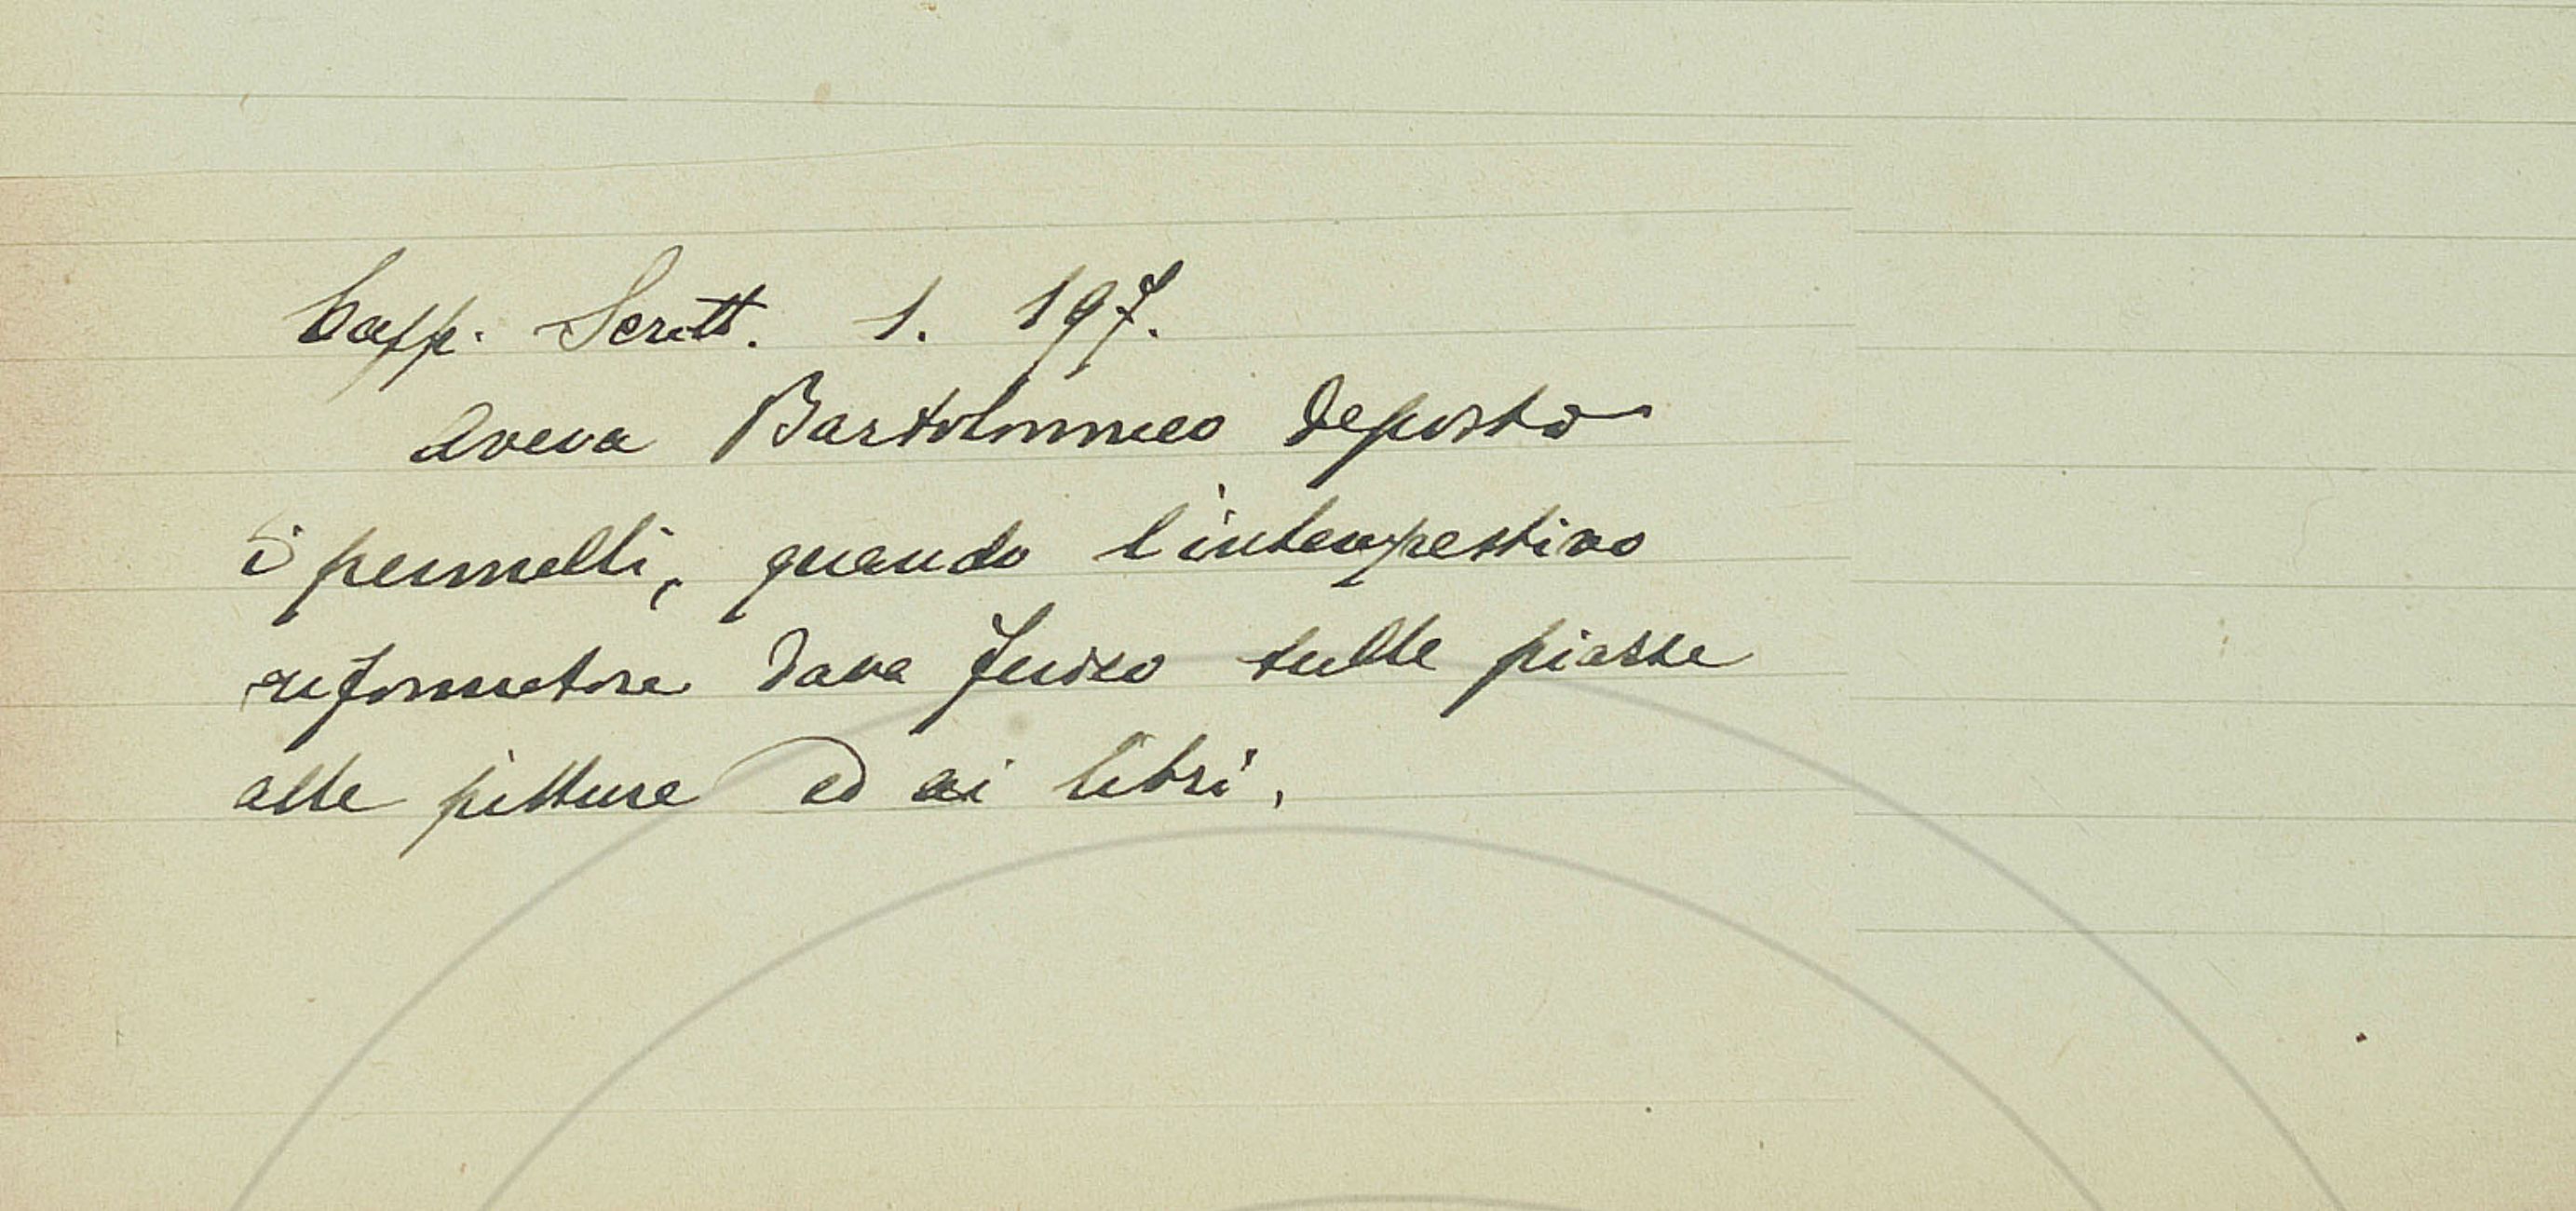 Capp. Scritt. 1. 197.
Aveva Bartolommeo deposto
i pennelli, quando l'intempestivo
riformatore dava fuoco sulle piazze
alle pitture ed ai libri.